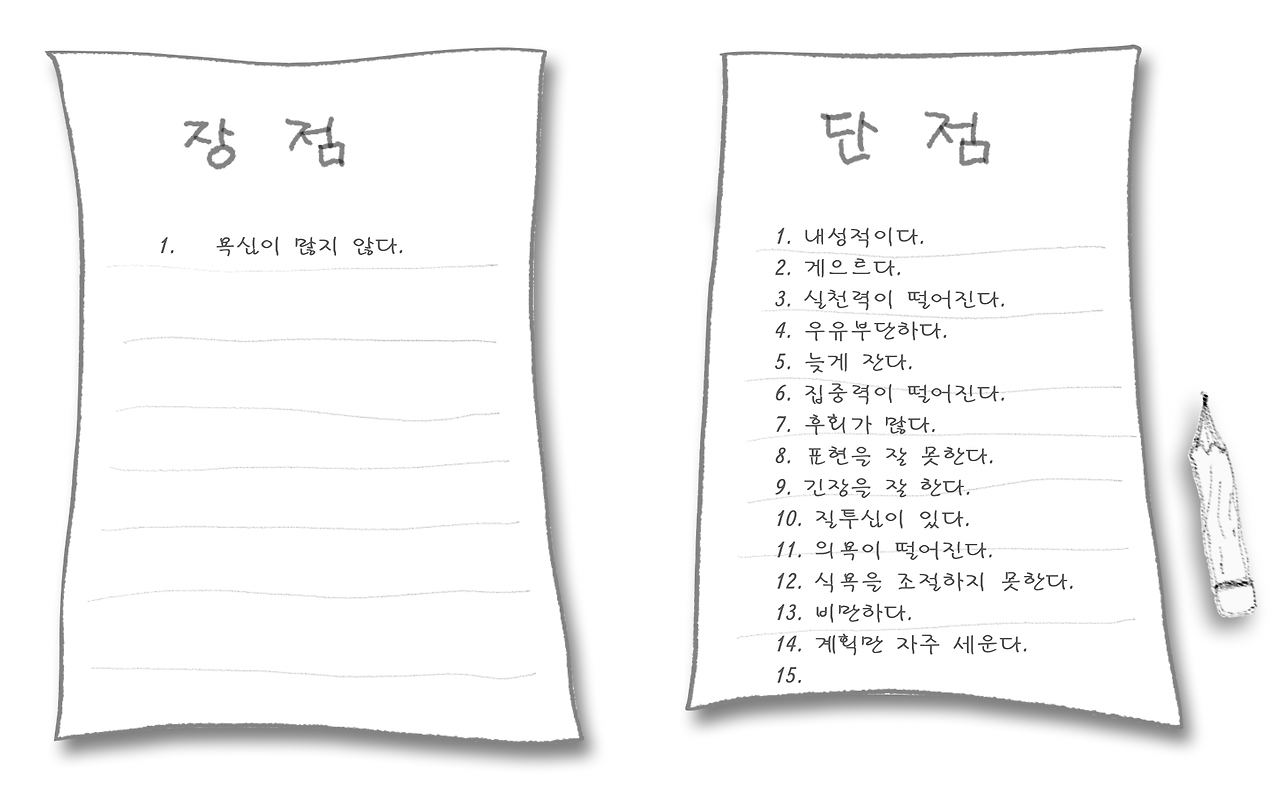 장 점
1. 욕심이 많지 않다.
단 점
1. 내성적이다.
2. 게으르다.
3. 실천력이 떨어진다.
4. 우유부단하다.
5. 늦게 잔다.
6. 집중력이 떨어진다.
7. 후회가 많다.
8. 표현을 잘 못한다.
9. 긴장을 잘 한다.
10. 질투심이 있다.
11. 의욕이 떨어진다.
12. 식욕을 조절하지 못한다.
13. 비만하다.
14. 계획만 자주 세운다.
15.